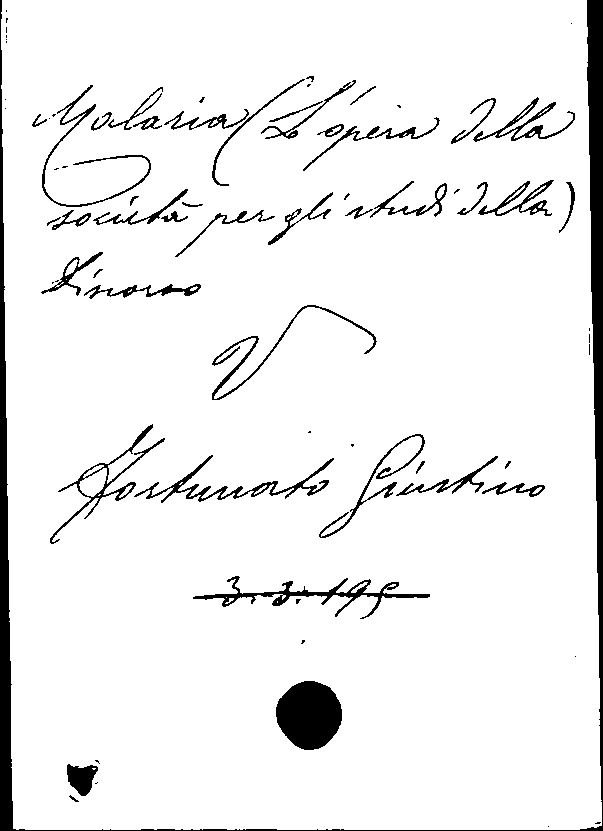 Malaria (L'opera della
società per gli studi della)
Discorso
V
Fortunato Giustino
3.3.195